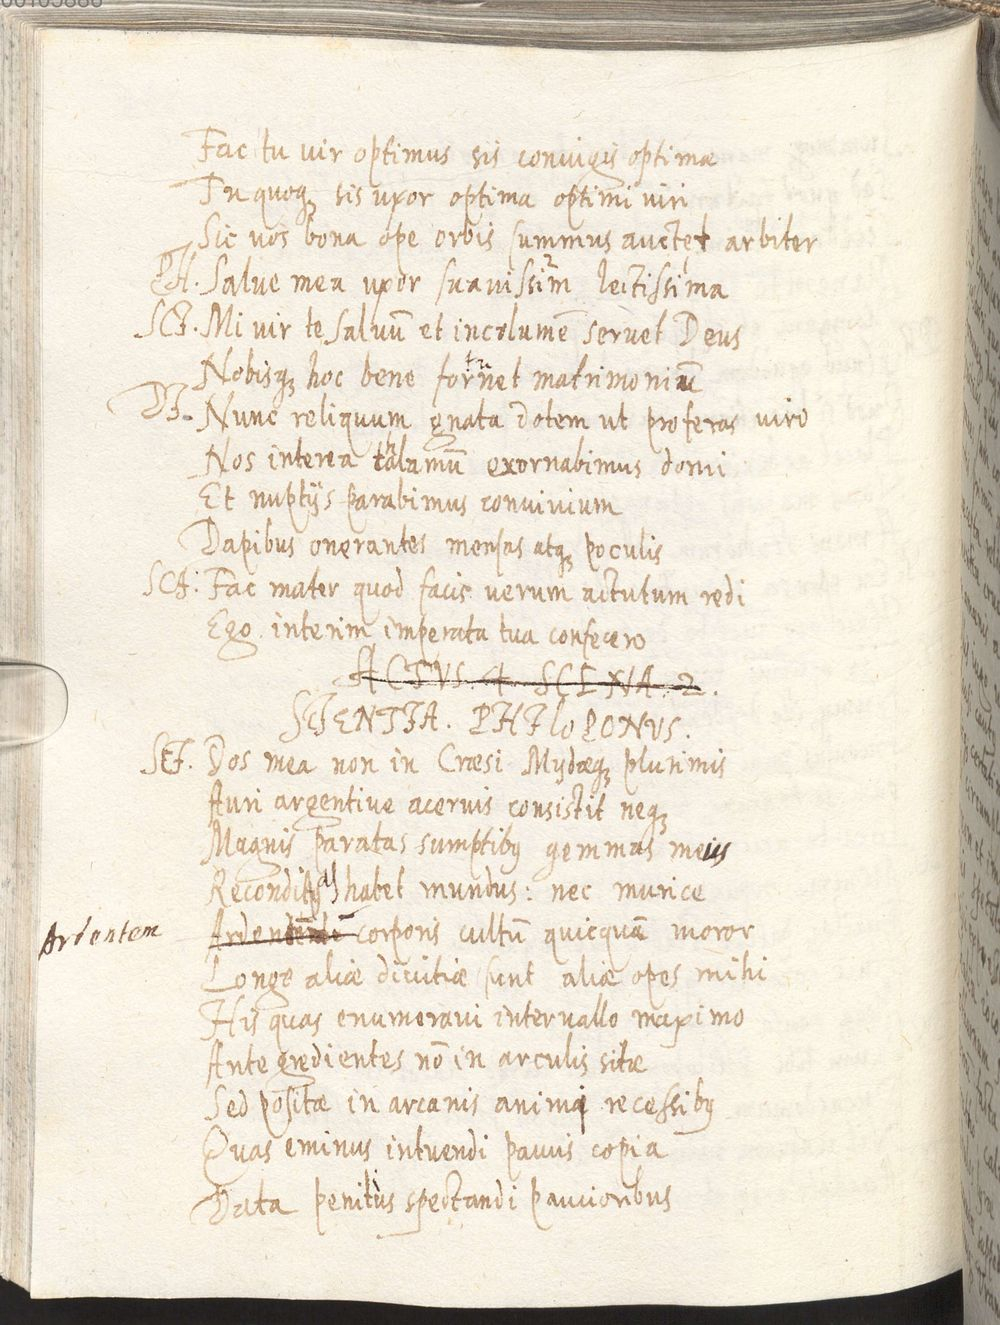 Fac tu vir optimus sis coniugis optimæ
Tu quoqꝫ sis uxor optima optimi viri
Sic vos bona ope orbis summus auctet arbiter
PH. Salve mea uxor suavissima lectissima
SCI. Mi vir te salvū et incolumē servet Deus
Nobisqꝫ hoc bene fortunet matrimoniū
DI. Nunc reliquum gnata dotem ut proferas viro
Nos interea thalamū exornabimus domi
Et nuptijs parabimus convivium
Dapibus onerantes mensas atqꝫ poculis
SCI. Fac mater quod facis verum actutum redi
Ego interim imperata tua confecero
ACTVS. 4. SCENA. 2.
SCIENTIA. PHILOPONVS.
SCI. Dos mea non in Cræsi Mydæqꝫ plurimis
Auri argentive acervis consistit neqꝫ
Magnis paratas sumptibꝫ gemmas meis
Reconditas habet mundus: nec murice
Ardentem
corporis cultū quicquā moror
Longe aliæ divitiæ sunt aliæ opes mihi
His quas enumeravi intervallo maximo
Ante gredientes nō in arculis sitæ
Sed positæ in arcanis animi recessibꝫ
Quas eminus intuendi paucis copia
Data penitùs spectandi paucioribus